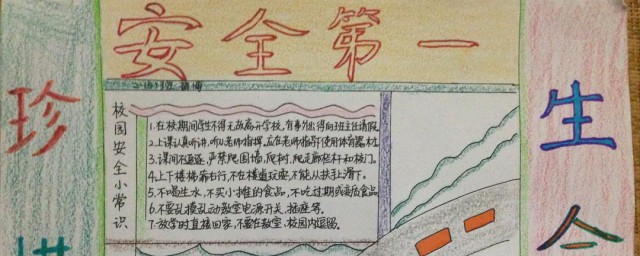 安全第一
珍
生
校园安全小常识
1.在校期间学生不得无故离开学校,有事外出得向班主任请假
2.上课认真听讲,听从老师指挥,应在老师指导下使用体育器材
3.课间不追逐,严禁爬围墙,爬树,爬走廊栏杆和校门。
4.上下楼梯靠右行,不在楼道玩耍,不能从扶手上滑下。
5.不喝生水,不买小摊的食品,不吃过期或变质食品
6.不要乱摸乱动教室电源开关、插座等。
7.放学时直接回家,不要在教室、校园内逗留。